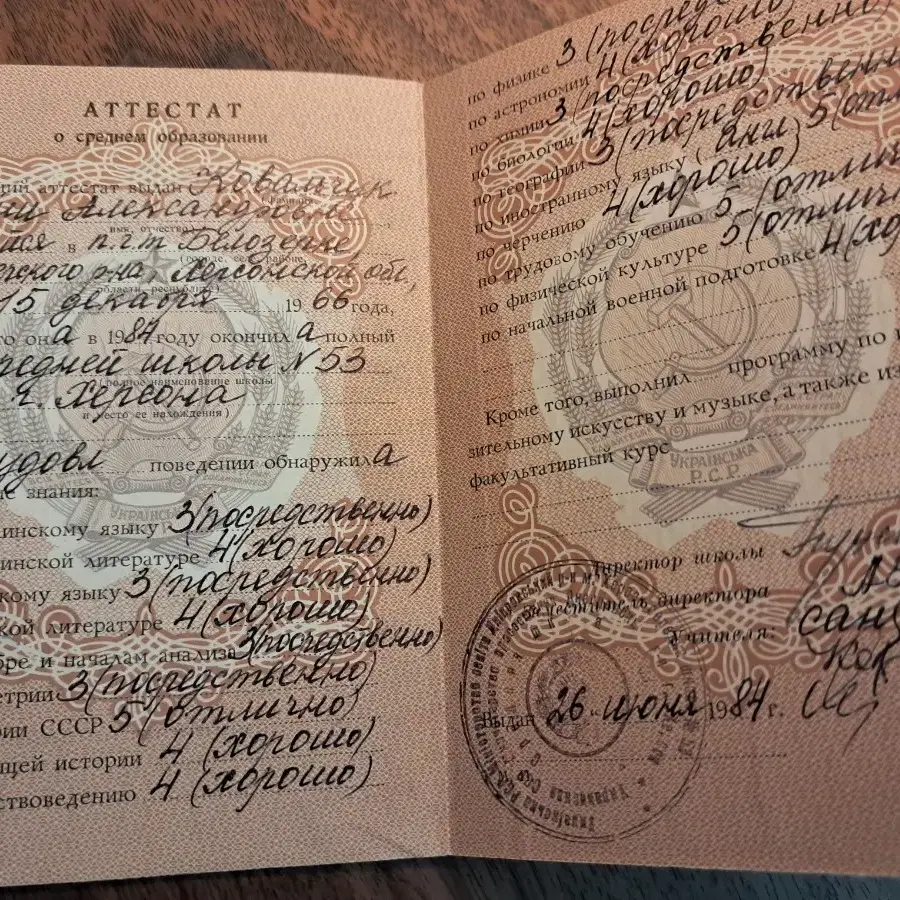 АТТЕСТАТ
о среднем образовании
аттестат выдан Ковальчук
(фамилия)
Александровна
имя, отчество
в п.г.т. Белозерке
(городе, селе, районе
р-на, Херсонской обл,
области, республики)
15 декабря 1966 года,
что она в 1984 году окончила полный
средней школы N 53
(полное наименование школы
г. Херсона
и место ее нахождения)
удовл поведении обнаружила
знания:
языку 3 (посредственно)
литературе 4 (хорошо)
языку 3 (посредственно)
литературе 4 (хорошо)
и началам анализа 3 (посредственно)
3 (посредственно)
СССР 5 (отлично)
истории 4 (хорошо)
4 (хорошо)
УКРАЇНСЬКА
по физике 3 (посредственно
по астрономии 4 (хорошо)
по химии 3 (посредственно)
по биологии 4 (хорошо)
по географии 3 (посредственно
по иностранному языку (англ) 5 (отл
по черчению 4 (хорошо)
по трудовому обучению 5 (отлично
по физической культуре 5 (отлично
по начальной военной подготовке 4 (хор
Кроме того, выполнил программу по
зительному искусству и музыке, а также из
факультативный курс
УКРАЇНСЬКА
Р С Р
Директор школы
Заместитель директора
Учителя:
Выдан „26" июня 1984 г.